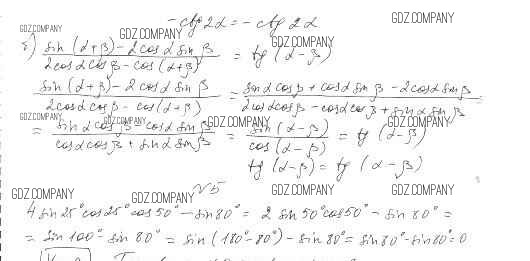 - ctg 2α = - ctg 2α
GDZ.COMPANY
GDZ.COMPANY GDZ.COMPANY
б) (sin (α+β) - 2cos α sin β) / (2cos α cos β - cos (α+β)) = tg (α-β)
GDZ.COMPANY
(sin (α+β) - 2cos α sin β) / (2cos α cos β - cos (α+β)) = (sin α cos β + cos α sin β - 2cos α sin β) / (2cos α cos β - cos α cos β + sin α sin β)
GDZ.COMPANY GDZ.COMPANY GDZ.COMPANY GDZ.COMPANY
= (sin α cos β - cos α sin β) / (cos α cos β + sin α sin β) = sin (α-β) / cos (α-β) = tg (α-β)
tg (α-β) = tg (α-β)
GDZ.COMPANY GDZ.COMPANY GDZ.COMPANY GDZ.COMPANY
№5
4 sin 25° cos 25° cos 50° - sin 80° = 2 sin 50° cos 50° - sin 80° =
= sin 100° - sin 80° = sin (180° - 80°) - sin 80° = sin 80° - sin 80° = 0